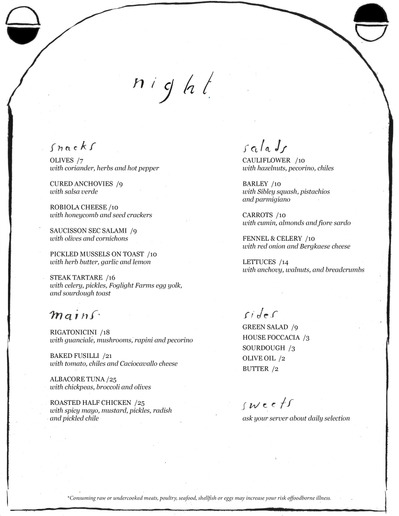 night
snacks
OLIVES /7
with coriander, herbs and hot pepper
CURED ANCHOVIES /9
with salsa verde
ROBIOLA CHEESE /10
with honeycomb and seed crackers
SAUCISSON SEC SALAMI /9
with olives and cornichons
PICKLED MUSSELS ON TOAST /10
with herb butter, garlic and lemon
STEAK TARTARE /16
with celery, pickles, Foglight Farms egg yolk,
and sourdough toast
mains
RIGATONICINI /18
with guanciale, mushrooms, rapini and pecorino
BAKED FUSILLI /21
with tomato, chiles and Caciocavallo cheese
ALBACORE TUNA /25
with chickpeas, broccoli and olives
ROASTED HALF CHICKEN /25
with spicy mayo, mustard, pickles, radish
and pickled chile
salads
CAULIFLOWER /10
with hazelnuts, pecorino, chiles
BARLEY /10
with Sibley squash, pistachios
and parmigiano
CARROTS /10
with cumin, almonds and fiore sardo
FENNEL & CELERY /10
with red onion and Bergkaese cheese
LETTUCES /14
with anchovy, walnuts, and breadcrumbs
sides
GREEN SALAD /9
HOUSE FOCCACIA /3
SOURDOUGH /3
OLIVE OIL /2
BUTTER /2
sweets
ask your server about daily selection
*Consuming raw or undercooked meats, poultry, seafood, shellfish or eggs may increase your risk offoodborne illness.